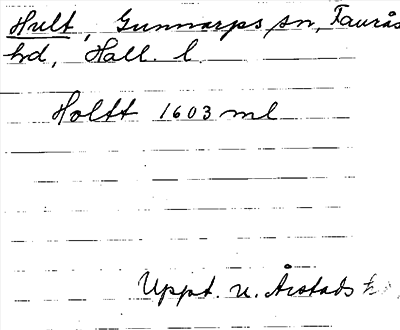 Hult, Gunnarps sn, Faurås
hd, Hall. l.
Holtt 1603 ml
Uppt. u. Årstads h